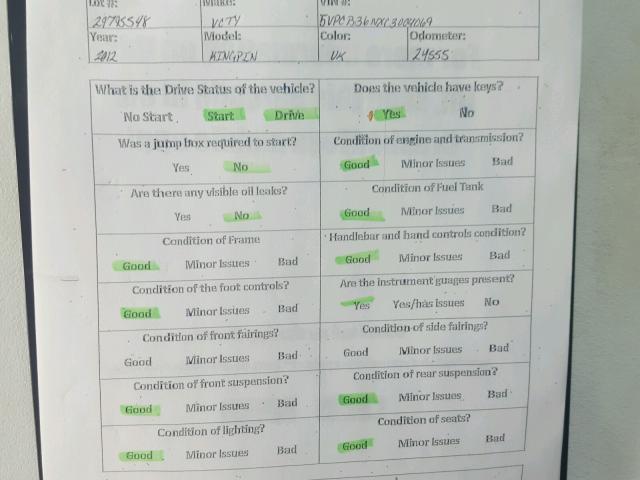 LOT #: MAKE: VIN #:
29785548 VCTY 5VPCB36NXC3004069
Year: Model: Color: Odometer:
2012 KINGPIN UK 24555
What is the Drive Status of the vehicle? Does the vehicle have keys?
No Start Start Drive Yes No
Was a jump box required to start? Condition of engine and transmission?
Yes No Good Minor Issues Bad
Are there any visible oil leaks? Condition of Fuel Tank
Yes No Good Minor Issues Bad
Condition of Frame Handlebar and hand controls condition?
Good Minor Issues Bad Good Minor Issues Bad
Condition of the foot controls? Are the instrument guages present?
Good Minor Issues Bad Yes Yes/has issues No
Condition of front fairings? Condition of side fairings?
Good Minor Issues Bad Good Minor Issues Bad
Condition of front suspension? Condition of rear suspension?
Good Minor Issues Bad Good Minor Issues Bad
Condition of lighting? Condition of seats?
Good Minor Issues Bad Good Minor Issues Bad